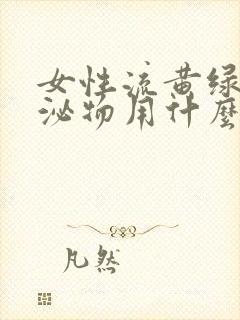 女性流黄绿
泌物用什麽
凡然